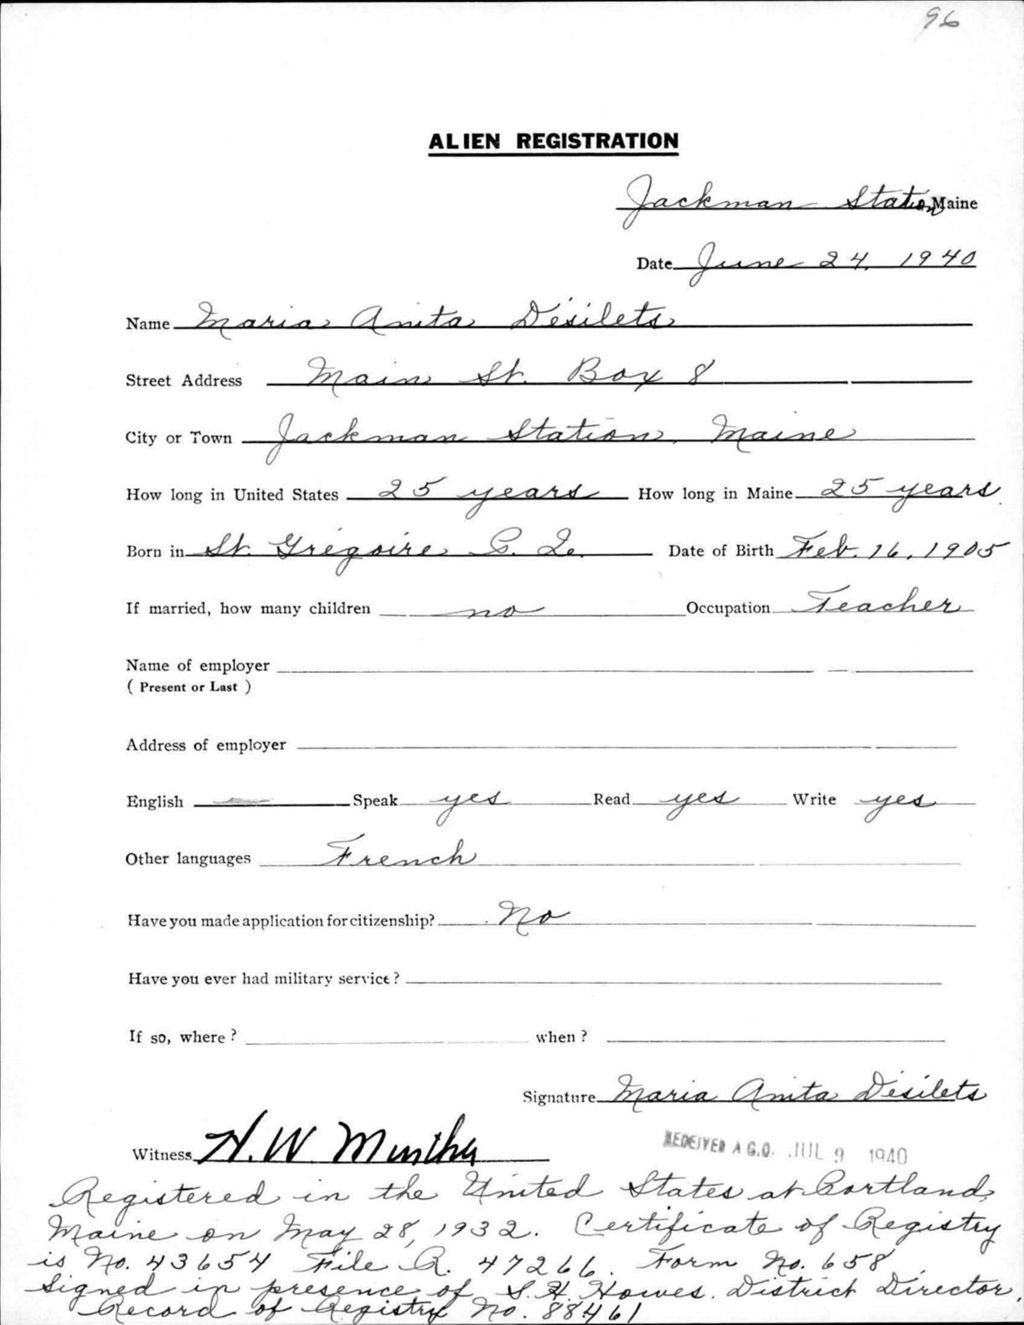 96
ALIEN REGISTRATION
Jackman Station, Maine
Date June 24, 1940
Name Maria Anita Désilets
Street Address Main St. Box 8
City or Town Jackman Station, Maine
How long in United States 25 years How long in Maine 25 years
Born in St. Grégoire P. Q. Date of Birth Feb. 16, 1905
If married, how many children no Occupation Teacher
Name of employer
( Present or Last )
Address of employer
English Speak yes Read yes Write yes
Other languages French
Have you made application for citizenship? No
Have you ever had military service?
If so, where? when?
Signature Maria Anita Désilets
Witness H. W.
RECEIVED A.G.O. JUL 9 1940
Registered in the United States at Portland,
Maine on May 28, 1932. Certificate of Registry
is No. 43654 File R. 47266. Form No. 658
Signed in presence of S. H. Howes. District Director.
Record of Registry No. 88461